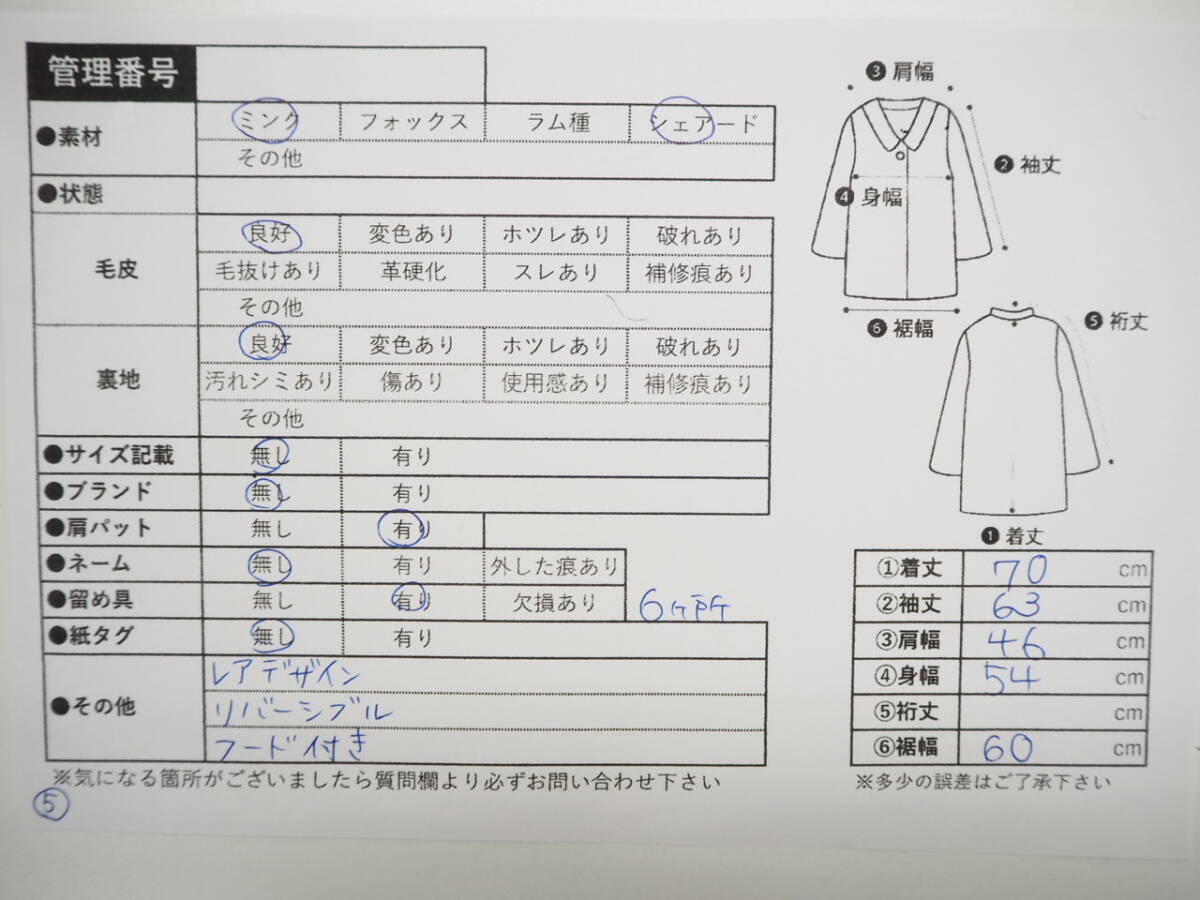 管理番号
●素材 ミンク フォックス ラム種 シェアード
その他
●状態
毛皮 良好 変色あり ホツレあり 破れあり
毛抜けあり 革硬化 スレあり 補修痕あり
その他
裏地 良好 変色あり ホツレあり 破れあり
汚れシミあり 傷あり 使用感あり 補修痕あり
その他
●サイズ記載 無し 有り
●ブランド 無し 有り
●肩パット 無し 有り
●ネーム 無し 有り 外した痕あり
●留め具 無し 有り 欠損あり 6ヶ所
●紙タグ 無し 有り
●その他 レアデザイン
リバーシブル
フード付き
※気になる箇所がございましたら質問欄より必ずお問い合わせ下さい
⑤
❸肩幅
❷袖丈
❹身幅
❻裾幅
❺裄丈
❶着丈
①着丈 70 cm
②袖丈 63 cm
③肩幅 46 cm
④身幅 54 cm
⑤裄丈 cm
⑥裾幅 60 cm
※多少の誤差はご了承下さい